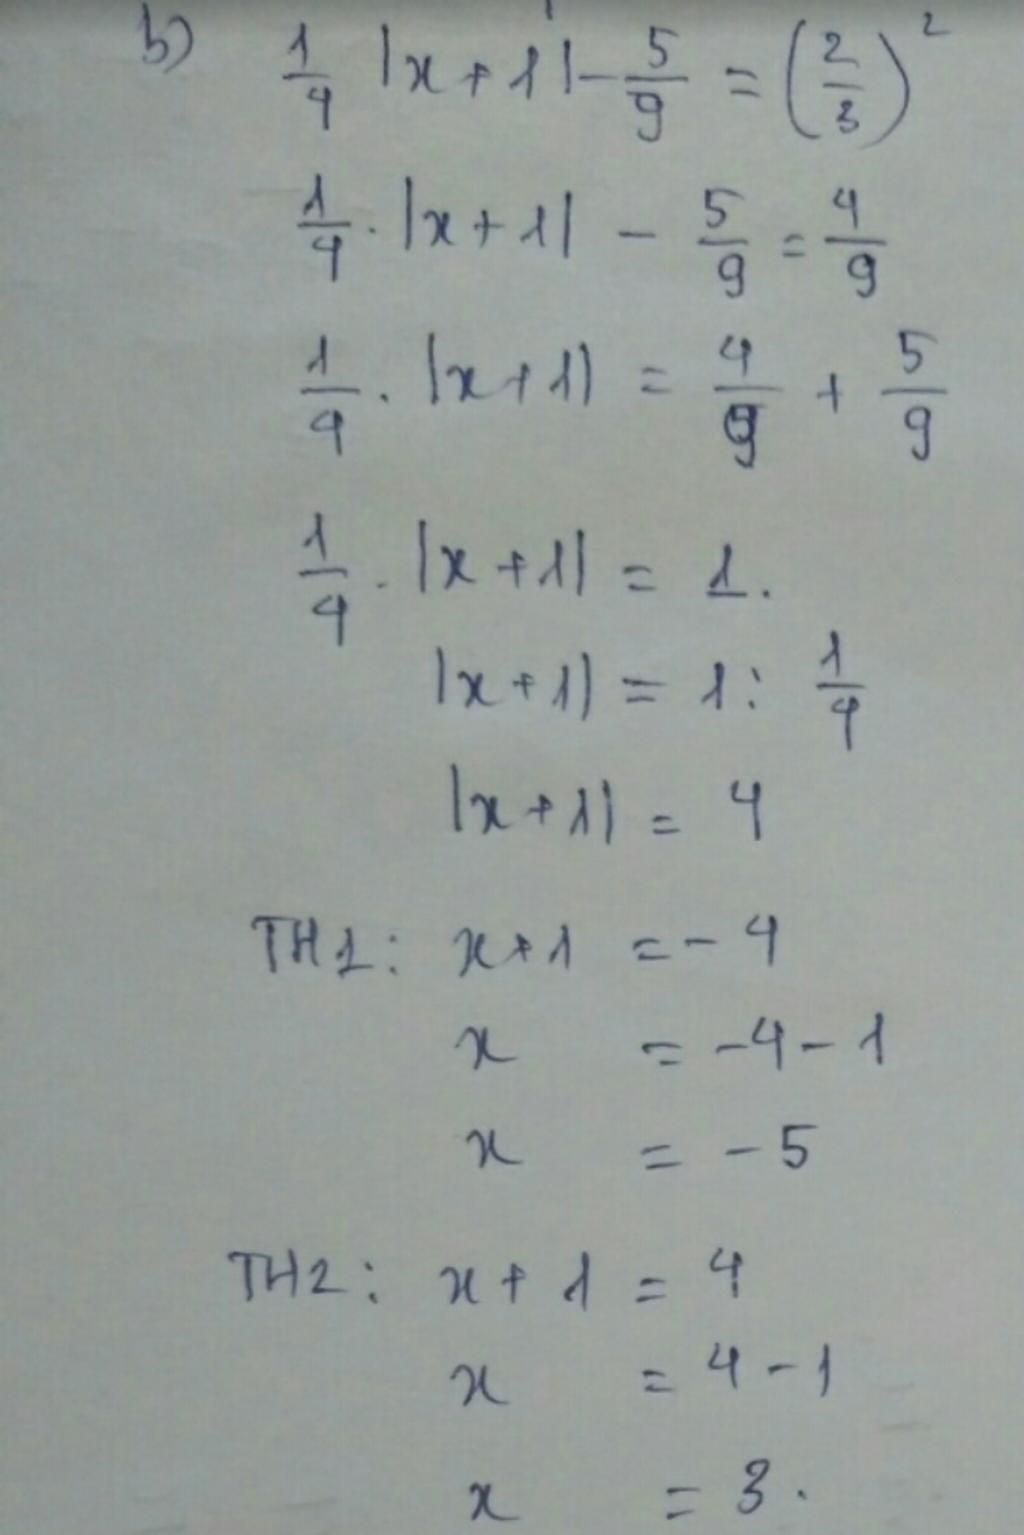 b) 1/4 |x+1| - 5/9 = (2/3)²
1/4 . |x+1| - 5/9 = 4/9
1/4 . |x+1| = 4/9 + 5/9
1/4 . |x+1| = 1.
|x+1| = 1 : 1/4
|x+1| = 4
TH1: x+1 = -4
x = -4-1
x = -5
TH2: x+1 = 4
x = 4-1
x = 3.